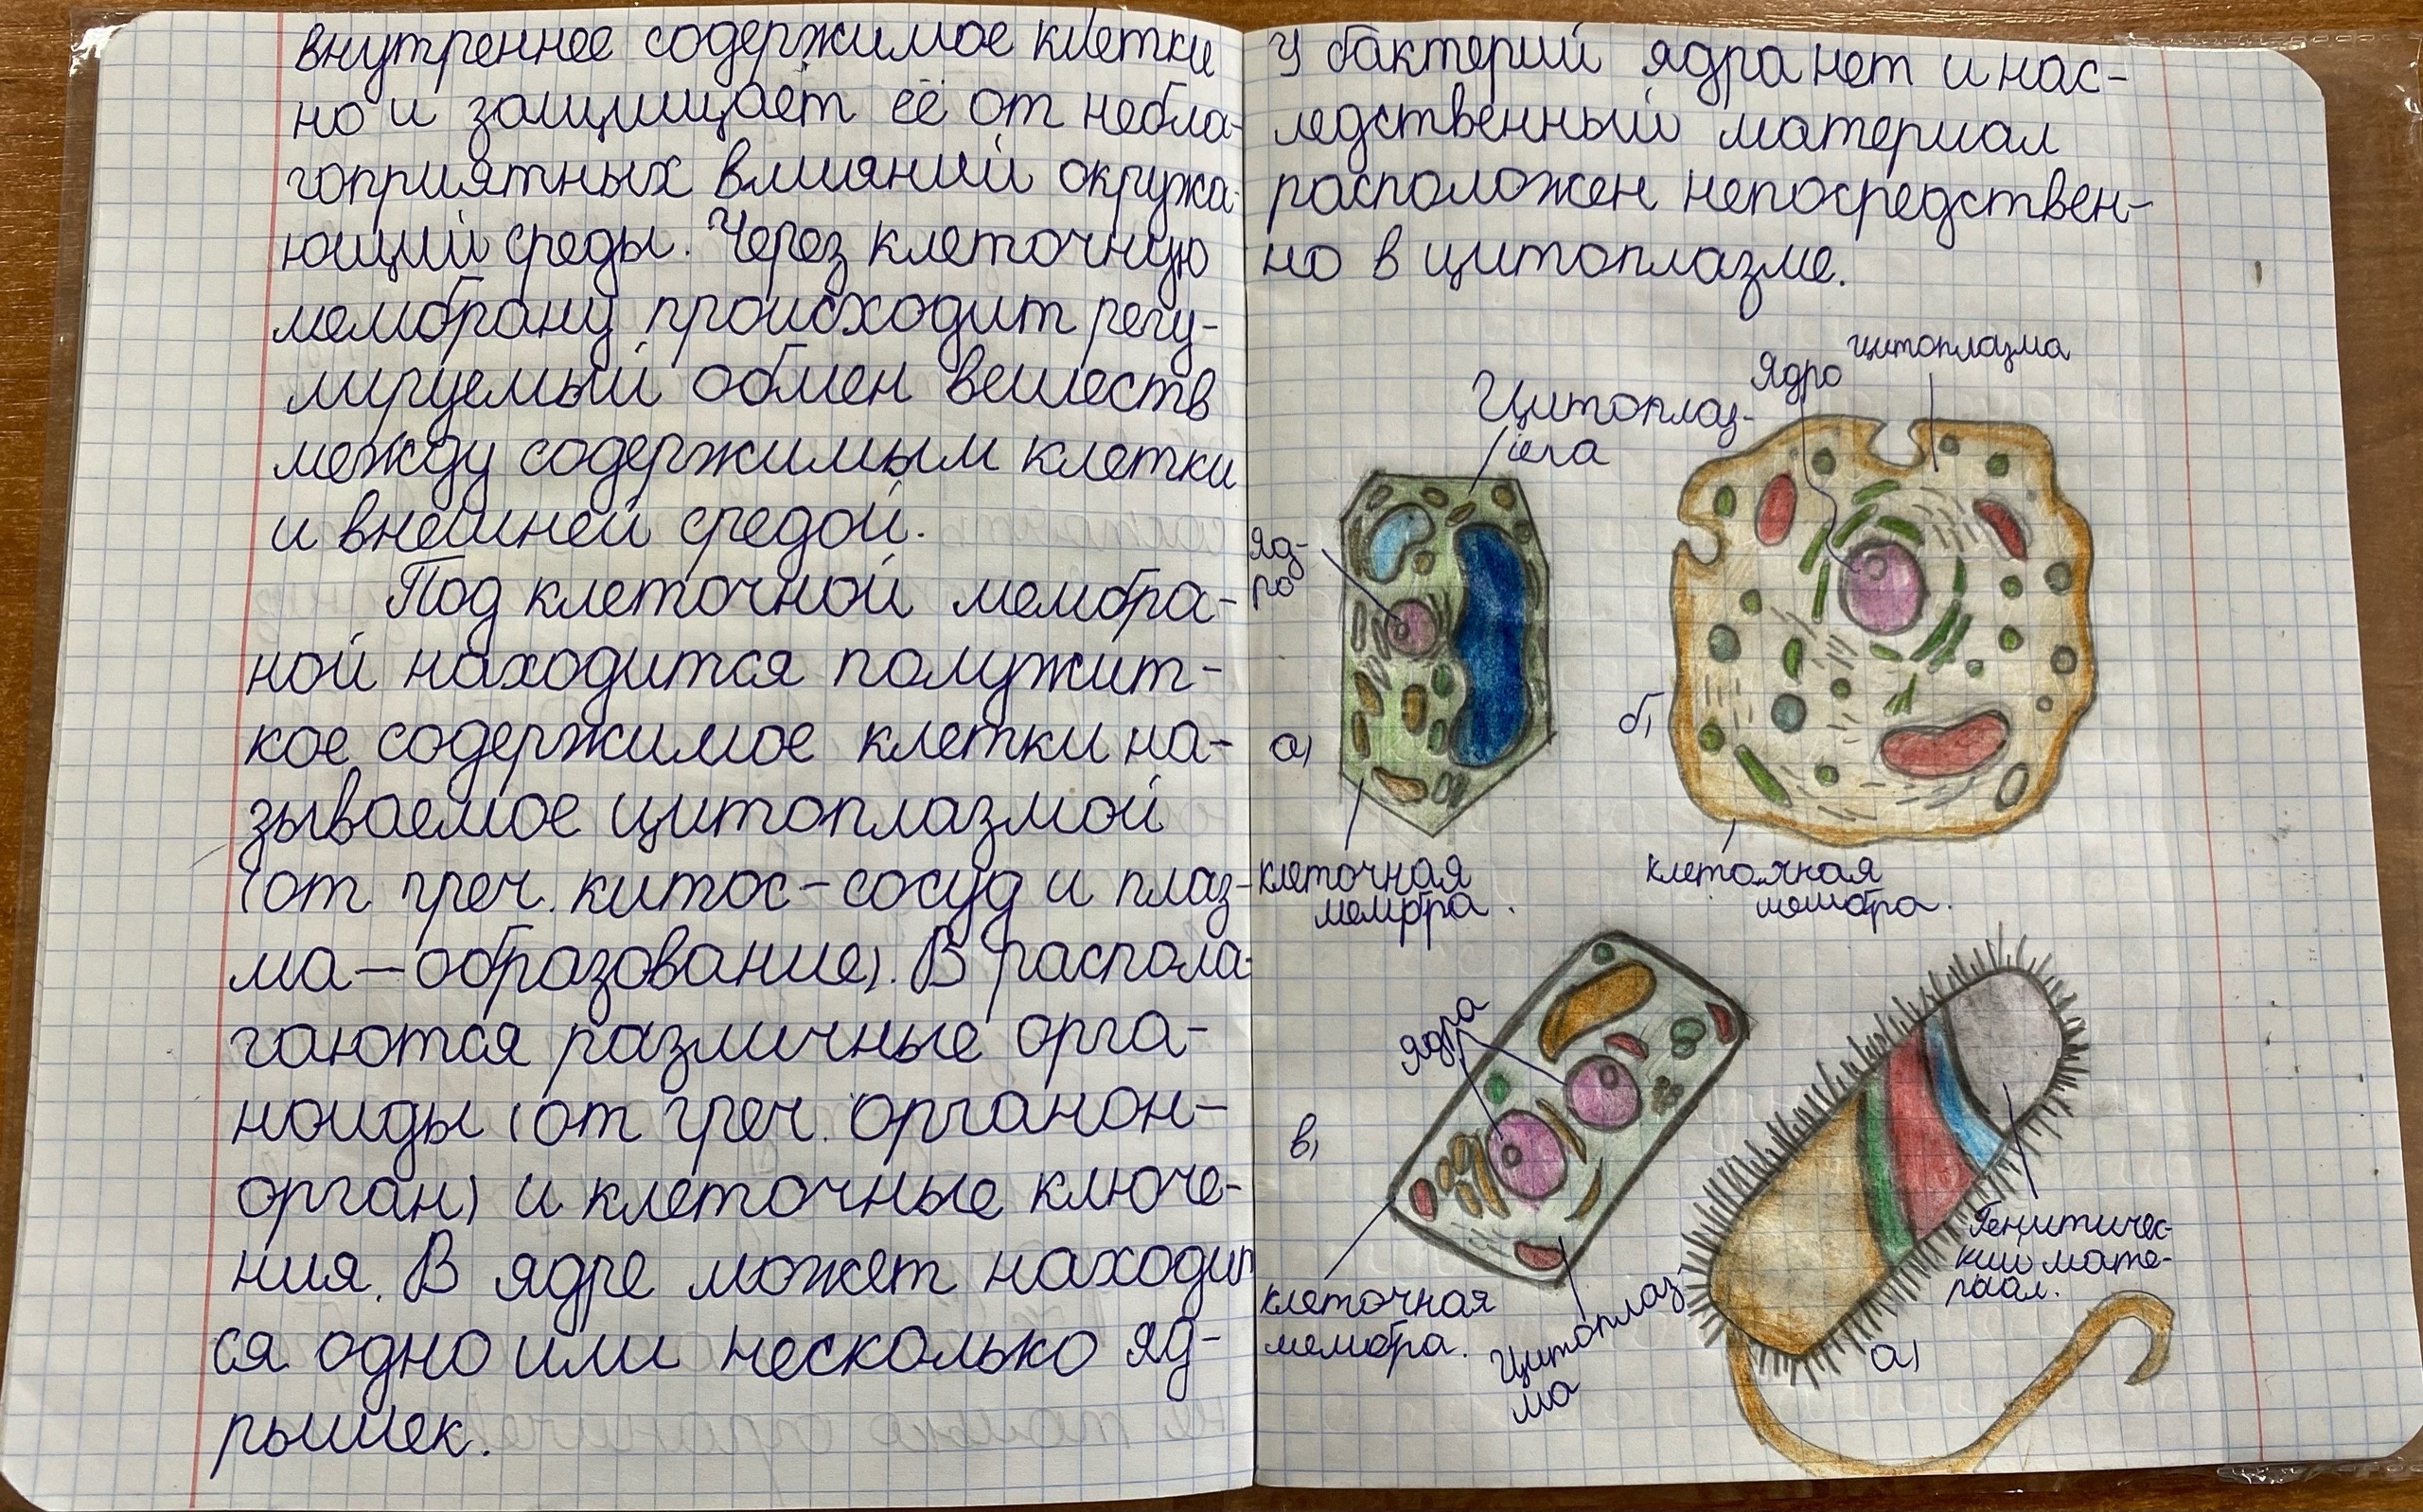 внутреннее содержимое клетки
но и защищает её от небла-
гоприятных влияний окружа-
ющий среды. Через клеточную
мембрану происходит регу-
лируемый обмен веществ
между содержимым клетки
и внешней средой.
Под клеточной мембра-
ной находится полужит-
кое содержимое клетки на-
зываемое цитоплазмой
(от греч. китос-сосуд и плаз-
ма-образование). В распола-
гаются различные орга-
ноиды (от греч. органон-
орган) и клеточные ключе-
ния. В ядре может находит
ся одно или несколько яд-
рышек.
У бактерий ядра нет и нас-
ледственный материал
расположен непосредствен-
но в цитоплазме.
Цитоплаз-
ма
Ядро
цитоплазма
яд-
ро
а)
б)
клеточная
мембра.
клеточная
мембра.
ядра
в)
клеточная
мембра.
Цитоплаз
ма
Генитичес-
кий мате-
риал.
а)